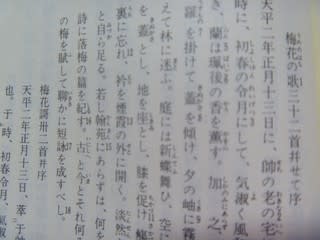 梅花の歌三十二首并せて序
天平二年正月十三日に、帥の老の宅
時に、初春の令月にして、気淑く風
き、蘭は珮後の香を薫す。加之、
羅を掛けて蓋を傾け、夕の岫に霧
えて林に迷ふ。庭には新蝶舞ひ、空に
を蓋とし、地を座とし、膝を促け
裏に忘れ、衿を煙霞の外に開く。淡然
と自ら足る。若し翰苑にあらずは、何を
詩に落梅の篇を紀す。古と今とそれ何
の梅を賦して聊かに短詠を成すべし。
梅花謌卅二首并序
天平二年正月十三日、萃于
也。于時、初春令月、気淑